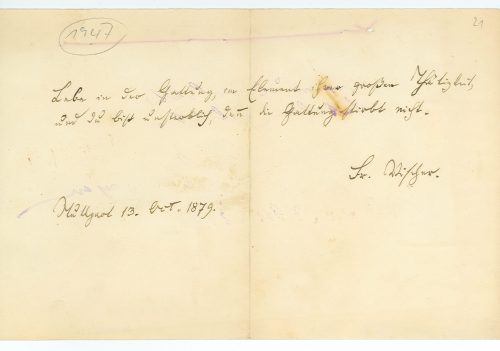 1947
21
Lebe in der Gattung, im Element ihrer großen Thätigkeit,
und du bist unsterblich, denn die Gattung stirbt nicht.
Fr. Vischer.
Stuttgart 13. Oct. 1879.